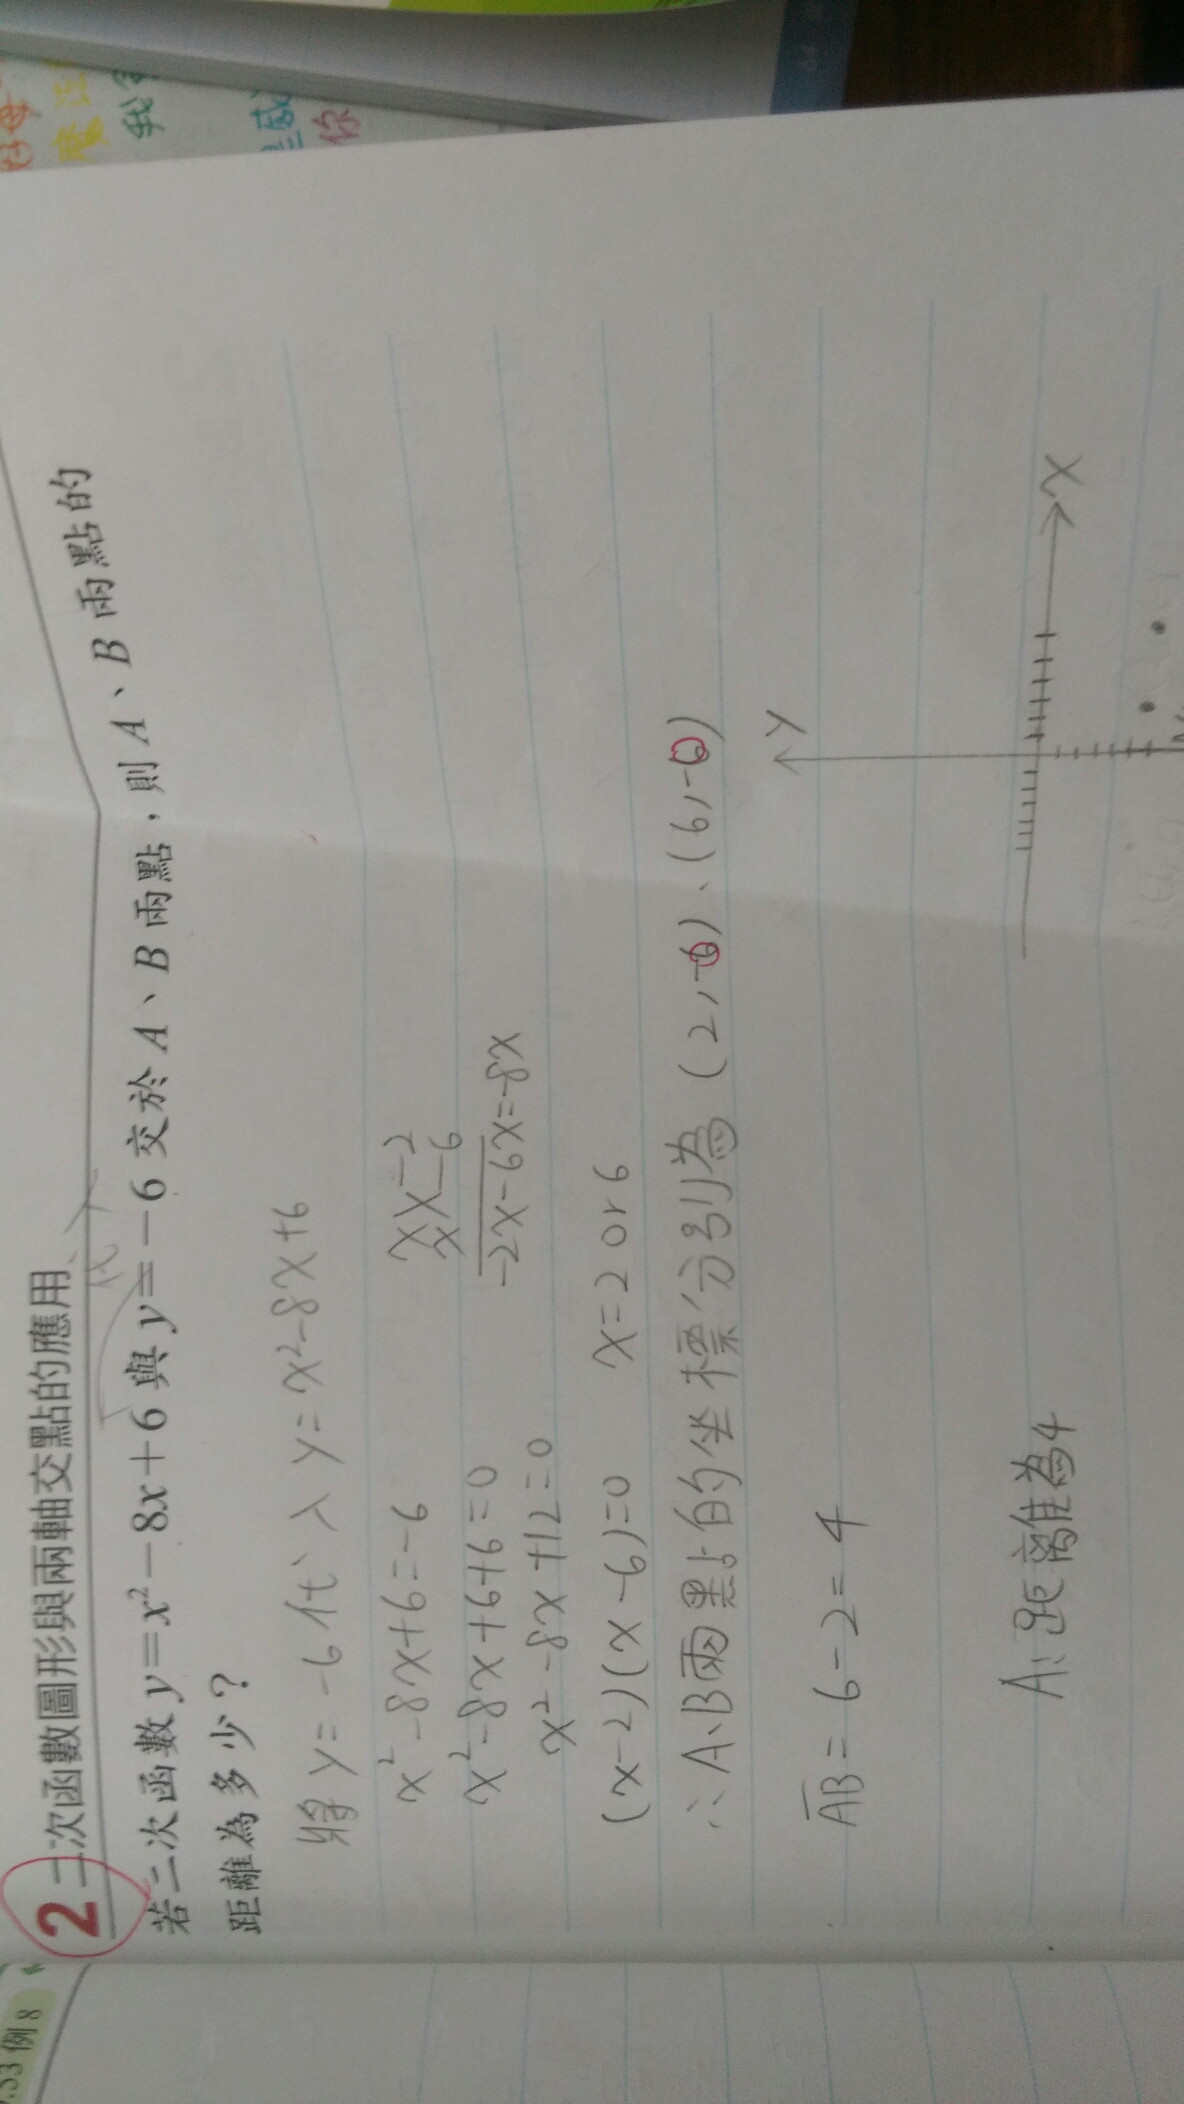 .53 例 8
2 二次函數圖形與兩軸交點的應用
代入
若二次函數 y=x²-8x+6 與 y=-6 交於 A、B 兩點，則 A、B 兩點的
距離為多少？
將 y=-6 代入 y=x²-8x+6
x²-8x+6=-6
x²-8x+6+6=0
x²-8x+12=0
x -2
x -6
-2x-6x=-8x
(x-2)(x-6)=0 x=2 or 6
∴A、B兩點的坐標分別為 (2,-6)、(6,-6)
AB=6-2=4
y
x
A:距離為4